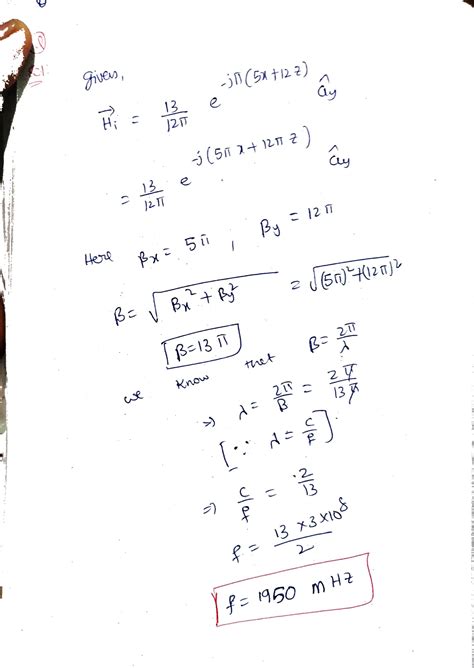 Given,
H⃗i = 13/12π e^-jπ(5x+12z) ây
= 13/12π e^-j(5πx+12πz) ây
Here βx = 5π, βy = 12π
β = √(βx² + βy²) = √(5π)²+(12π)²
β=13π
we know that β = 2π/λ
⇒ λ = 2π/β = 2π/13π
[∵ λ = c/f]
⇒ c/f = 2/13
f = 13×3×10⁸/2
f = 1950 mHz